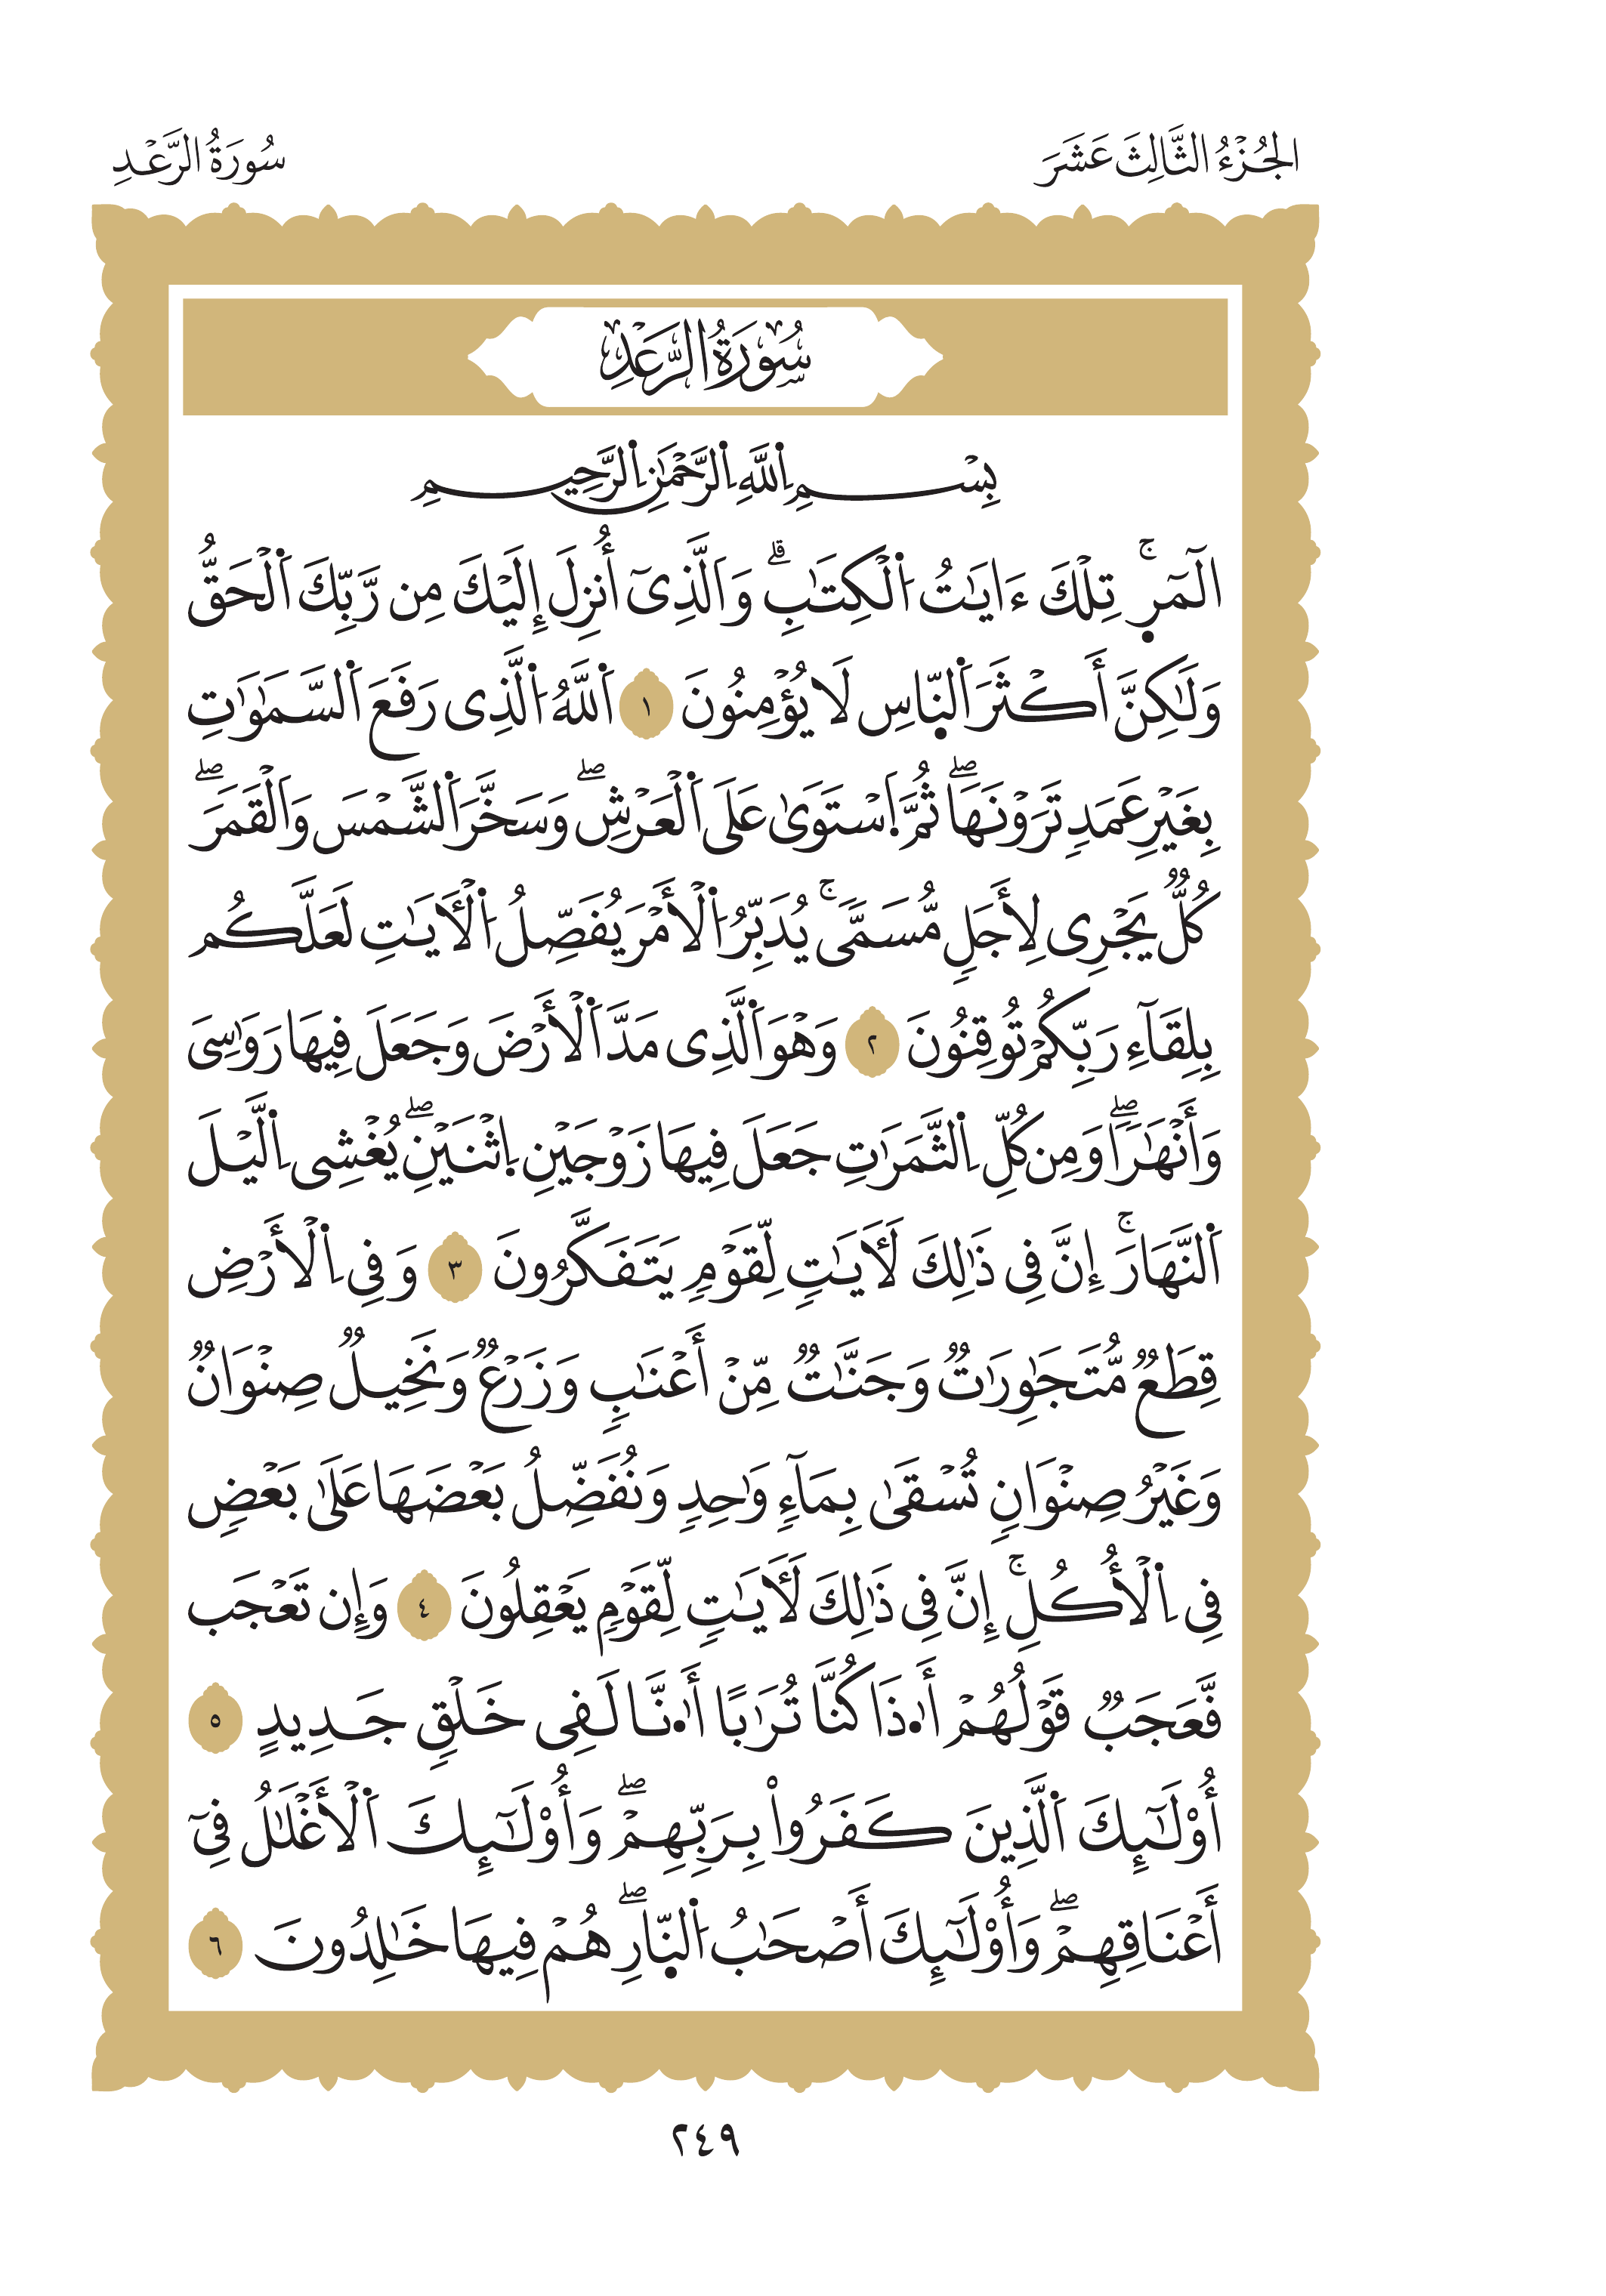 الجُزْءُ الثَّالِثَ عَشَرَ
سُورَةُ الرَّعۡدِ
سُورَةُ الرَّعۡدِ
بِسۡمِ اِ۬للَّهِ اِ۬لرَّحۡمَٰنِ اِ۬لرَّحِيمِ
الٓمٓر۪ۚ تِلۡكَ ءَايَٰتُ اُ۬لۡكِتَٰبِۗ وَاَلَّذِيٓ أُنزِلَ إِلَيۡكَ مِن رَّبِّكَ اَ۬لۡحَقُّ
وَلَٰكِنَّ أَكۡثَرَ اَ۬لنّ۪اسِ لَا يُؤۡمِنُونَ ١ اَ۬للَّهُ اُ۬لَّذِي رَفَعَ اَ۬لسَّمَٰوَٰتِ
بِغَيۡرِ عَمَدٖ تَرَوۡنَهَاۖ ثُمَّ اَ۪سۡتَوَىٰ عَلَى اَ۬لۡعَرۡشِۖ وَسَخَّرَ اَ۬لشَّمۡسَ وَاَلۡقَمَرَۖ
كُلّٞ يَجۡرِي لِأَجَلٖ مُّسَمّٗىۚ يُدَبِّرُ اُ۬لۡأَمۡرَ يُفَصِّلُ اُ۬لۡأٓيَٰتِ لَعَلَّكُم
بِلِقَآءِ رَبِّكُمۡ تُوقِنُونَ ٢ وَهۡوَ اَ۬لَّذِي مَدَّ اَ۬لۡأَرۡضَ وَجَعَلَ فِيهَا رَوَٰسِيَ
وَأَنۡهَٰرٗاۖ وَمِن كُلِّ اِ۬لثَّمَرَٰتِ جَعَلَ فِيهَا زَوۡجَيۡنِ اِ۪ثۡنَيۡنِۖ يُغۡشِي اِ۬لَّيۡلَ
اَ۬لنَّهَارَۚ إِنَّ فِي ذَٰلِكَ لَأٓيَٰتٖ لِّقَوۡمٖ يَتَفَكَّرُونَ ٣ وَفِي اِ۬لۡأَرۡضِ
قِطَعٞ مُّتَجَٰوِرَٰتٞ وَجَنَّٰتٞ مِّنۡ أَعۡنَٰبٖ وَزَرۡعٞ وَنَخِيلٞ صِنۡوَانٞ
وَغَيۡرُ صِنۡوَانٖ تُسۡقَىٰ بِمَآءٖ وَٰحِدٖ وَنُفَضِّلُ بَعۡضَهَا عَلَىٰ بَعۡضٖ
فِي اِ۬لۡأُكُلِۚ إِنَّ فِي ذَٰلِكَ لَأٓيَٰتٖ لِّقَوۡمٖ يَعۡقِلُونَ ٤ وَإِن تَعۡجَب
فَّعَجَبٞ قَوۡلُهُمۡ أَٰ۟ذَا كُنَّا تُرَٰبًا أَٰ۟نَّا لَفِي خَلۡقٖ جَدِيدٍ ٥
أُوْلَٰٓئِكَ اَ۬لَّذِينَ كَفَرُواْ بِرَبِّهِمۡۖ وَأُوْلَٰٓئِكَ اَ۬لۡأَغۡلَٰلُ فِيٓ
أَعۡنَاقِهِمۡۖ وَأُوْلَٰٓئِكَ أَصۡحَٰبُ اُ۬لنّ۪ارِۖ هُمۡ فِيهَا خَٰلِدُونَ ٦
٢٤٩